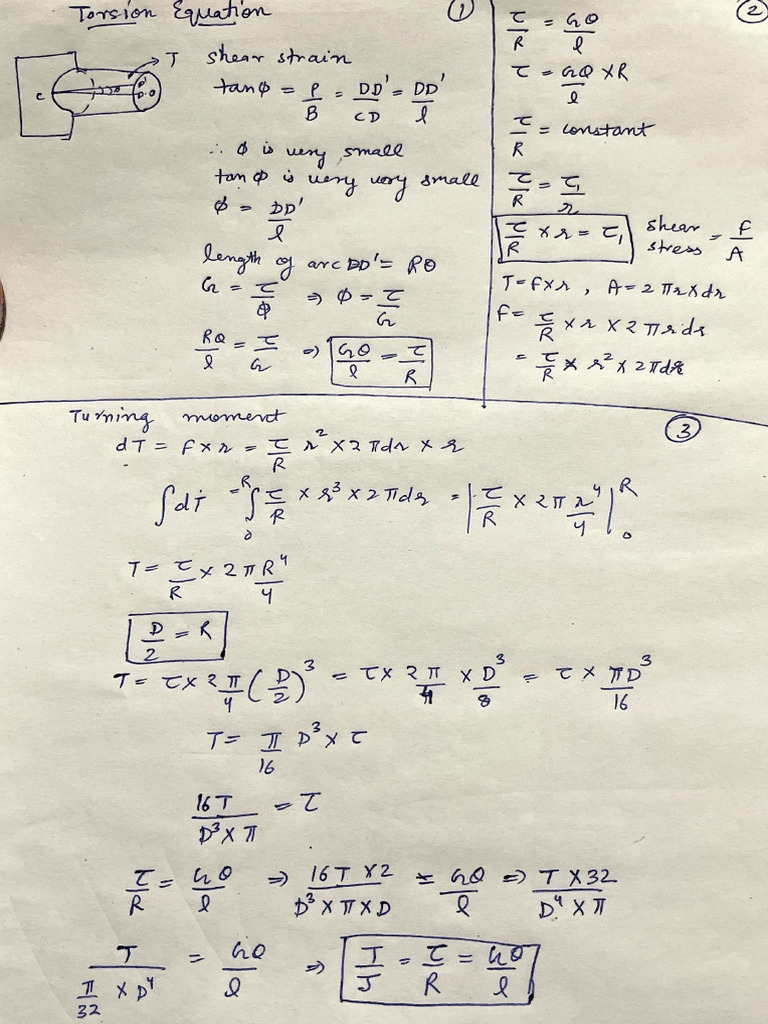 Torsion Equation
①
T
C
D'
D O
shear strain
tanϕ = P/B = DD'/CD = DD'/l
∴ ϕ is very small
tan ϕ is very very small
ϕ = DD'/l
length of arc DD' = Rθ
G = τ/ϕ ⇒ ϕ = τ/G
Rθ/l = τ/G ⇒ Gθ/l = τ/R
②
τ/R = Gθ/l
τ = Gθ/l × R
τ/R = constant
τ/R = τ₁/r
τ/R × r = τ₁ shear stress = F/A
T = f×r , A = 2πr×dr
F = τ/R × r × 2πrdr
= τ/R × r² × 2πdr
③
Turning moment
dT = F × r = τ/R r² × 2πdr × r
∫dT = ∫₀ᴿ τ/R × r³ × 2πdr = |τ/R × 2π r⁴/4|₀ᴿ
T = τ/R × 2πR⁴/4
D/2 = R
T = τ × 2π/4 (D/2)³ = τ × 2π/4 × D³/8 = τ × πD³/16
T = π/16 D³ × τ
16T/D³×π = τ
τ/R = Gθ/l ⇒ 16T×2/D³×π×D = Gθ/l ⇒ T×32/D⁴×π
T/π/32 × D⁴ = Gθ/l ⇒ T/J = τ/R = Gθ/l